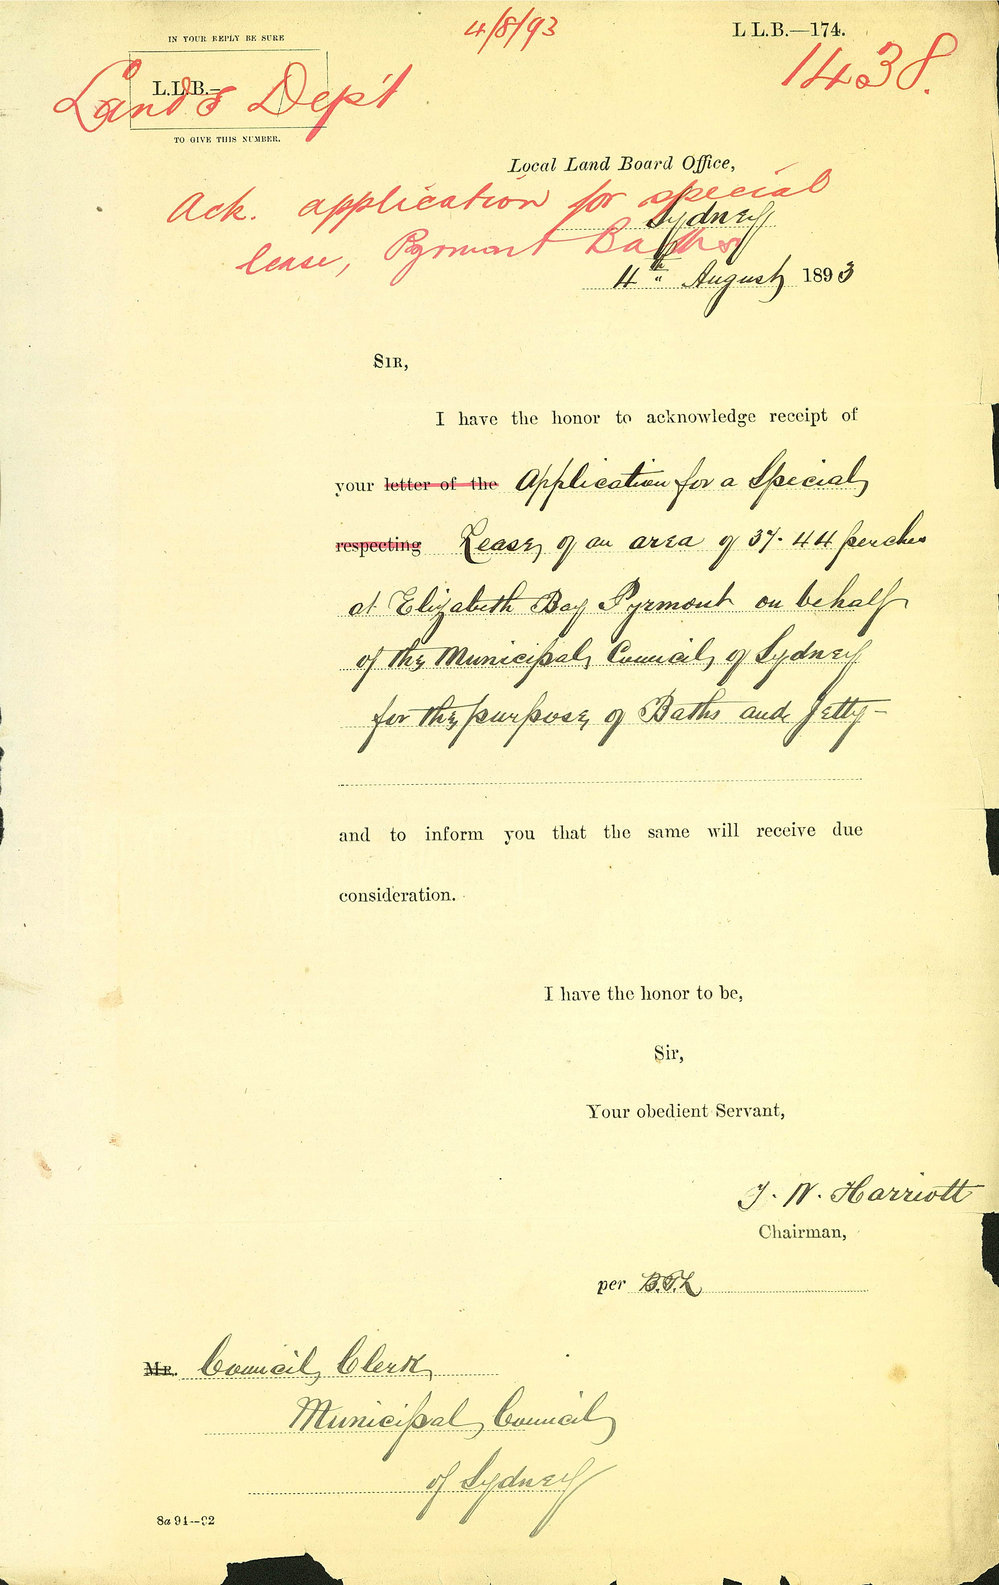 4/8/93
L L.B.—174.
IN YOUR REPLY BE SURE
1438.
L.L.B.—
Lands Dep't
TO GIVE THIS NUMBER.
Local Land Board Office,
Ack. application for special
Sydney
lease, Pyrmont Baths
4th August 1893
SIR,
I have the honor to acknowledge receipt of
your letter of the Application for a Special
respecting Lease of an area of 37.44 perches
at Elizabeth Bay Pyrmont on behalf
of the Municipal Council of Sydney
for the purpose of Baths and Jetty—
and to inform you that the same will receive due
consideration.
I have the honor to be,
Sir,
Your obedient Servant,
J. W. Harriott
Chairman,
per B.T.L
MR. Council Clerk
Municipal Council
of Sydney
8a 91—92